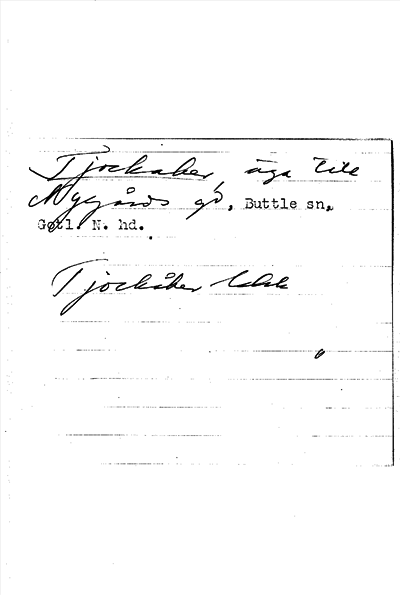 Tjockaker, äga till
Nygårds gd, Buttle sn,
Gotl. N. hd.
Tjockåker